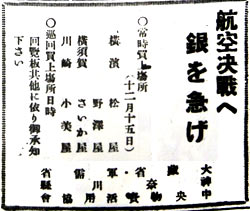 航空決戦へ
銀を急げ
○常時買上場所
(十二月十五日)
横濱 松屋
野澤屋
横須賀 さいか屋
川崎 小美屋
○巡回買上場所日時
回覧板其他に依り御承知
下さい
大藏省 軍需省
神奈川縣
中央物資活用協會